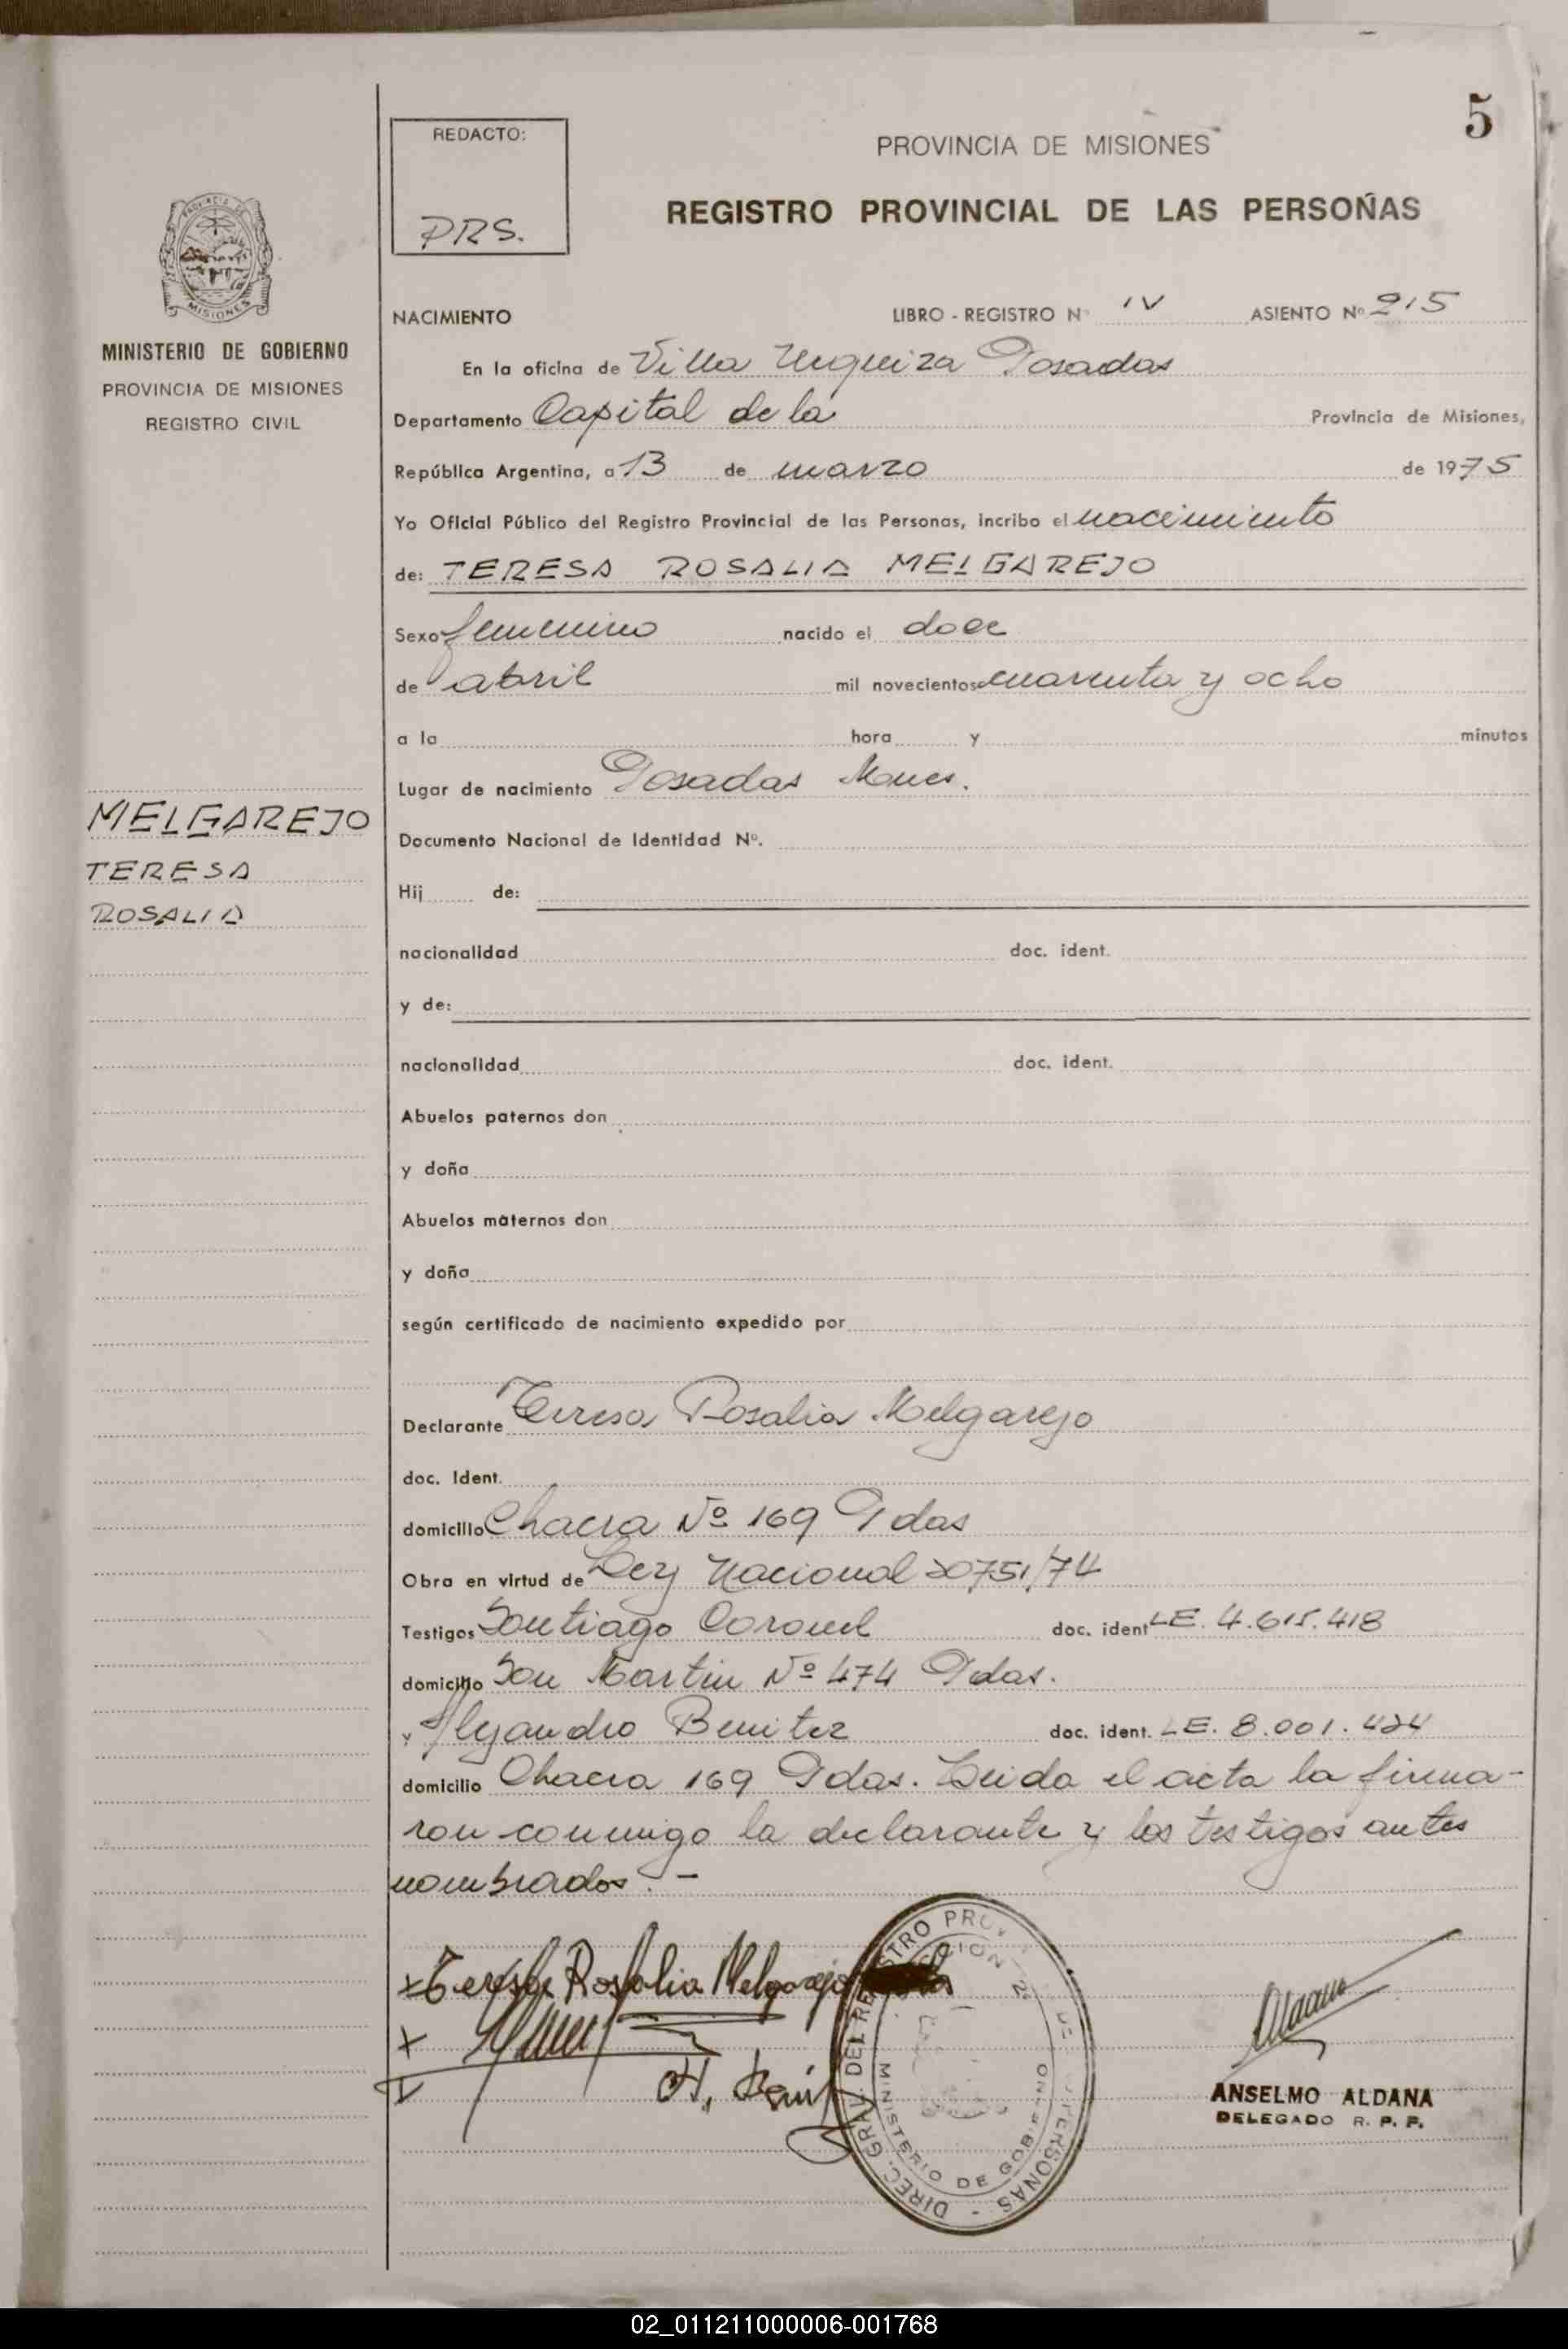 5
REDACTO:
PRS.
PROVINCIA DE MISIONES
REGISTRO PROVINCIAL DE LAS PERSOÑAS
MISIONES
MINISTERIO DE GOBIERNO
PROVINCIA DE MISIONES
REGISTRO CIVIL
NACIMIENTO LIBRO - REGISTRO Nº IV ASIENTO Nº 215
En la oficina de Villa Urquiza Posadas
Departamento Capital de la Provincia de Misiones,
República Argentina, a 13 de marzo de 1975
Yo Oficial Público del Registro Provincial de las Personas, incribo el nacimiento
de: TERESA ROSALIA MELGAREJO
Sexo femenino nacido el doce
de abril mil novecientos cuarenta y ocho
a la hora y minutos
Lugar de nacimiento Posadas Mnes.
MELGAREJO
TERESA
ROSALIA
Documento Nacional de Identidad Nº.
Hij de:
nacionalidad doc. ident.
y de:
nacionalidad doc. ident.
Abuelos paternos don
y doña
Abuelos maternos don
y doña
según certificado de nacimiento expedido por
Declarante Teresa Rosalia Melgarejo
doc. Ident.
domicilio Chacra Nº 169 Pdas
Obra en virtud de Ley Nacional 20751/74
Testigos Santiago Coronel doc. ident LE. 4.615.418
domicilio San Martin Nº 474 Pdas.
y Alejandro Benitez doc. ident. LE. 8.001.424
domicilio Chacra 169 Pdas. Leida el acta la firma-
ron conmigo la declarante y los testigos antes
nombrados. -
x Teresa Rosalia Melgarejo
x
DIREC. GRAL. DEL REGISTRO PROV. DE PERSONAS -
MINISTERIO DE GOBIERNO
ANSELMO ALDANA
DELEGADO R. P. P.
02_011211000006-001768